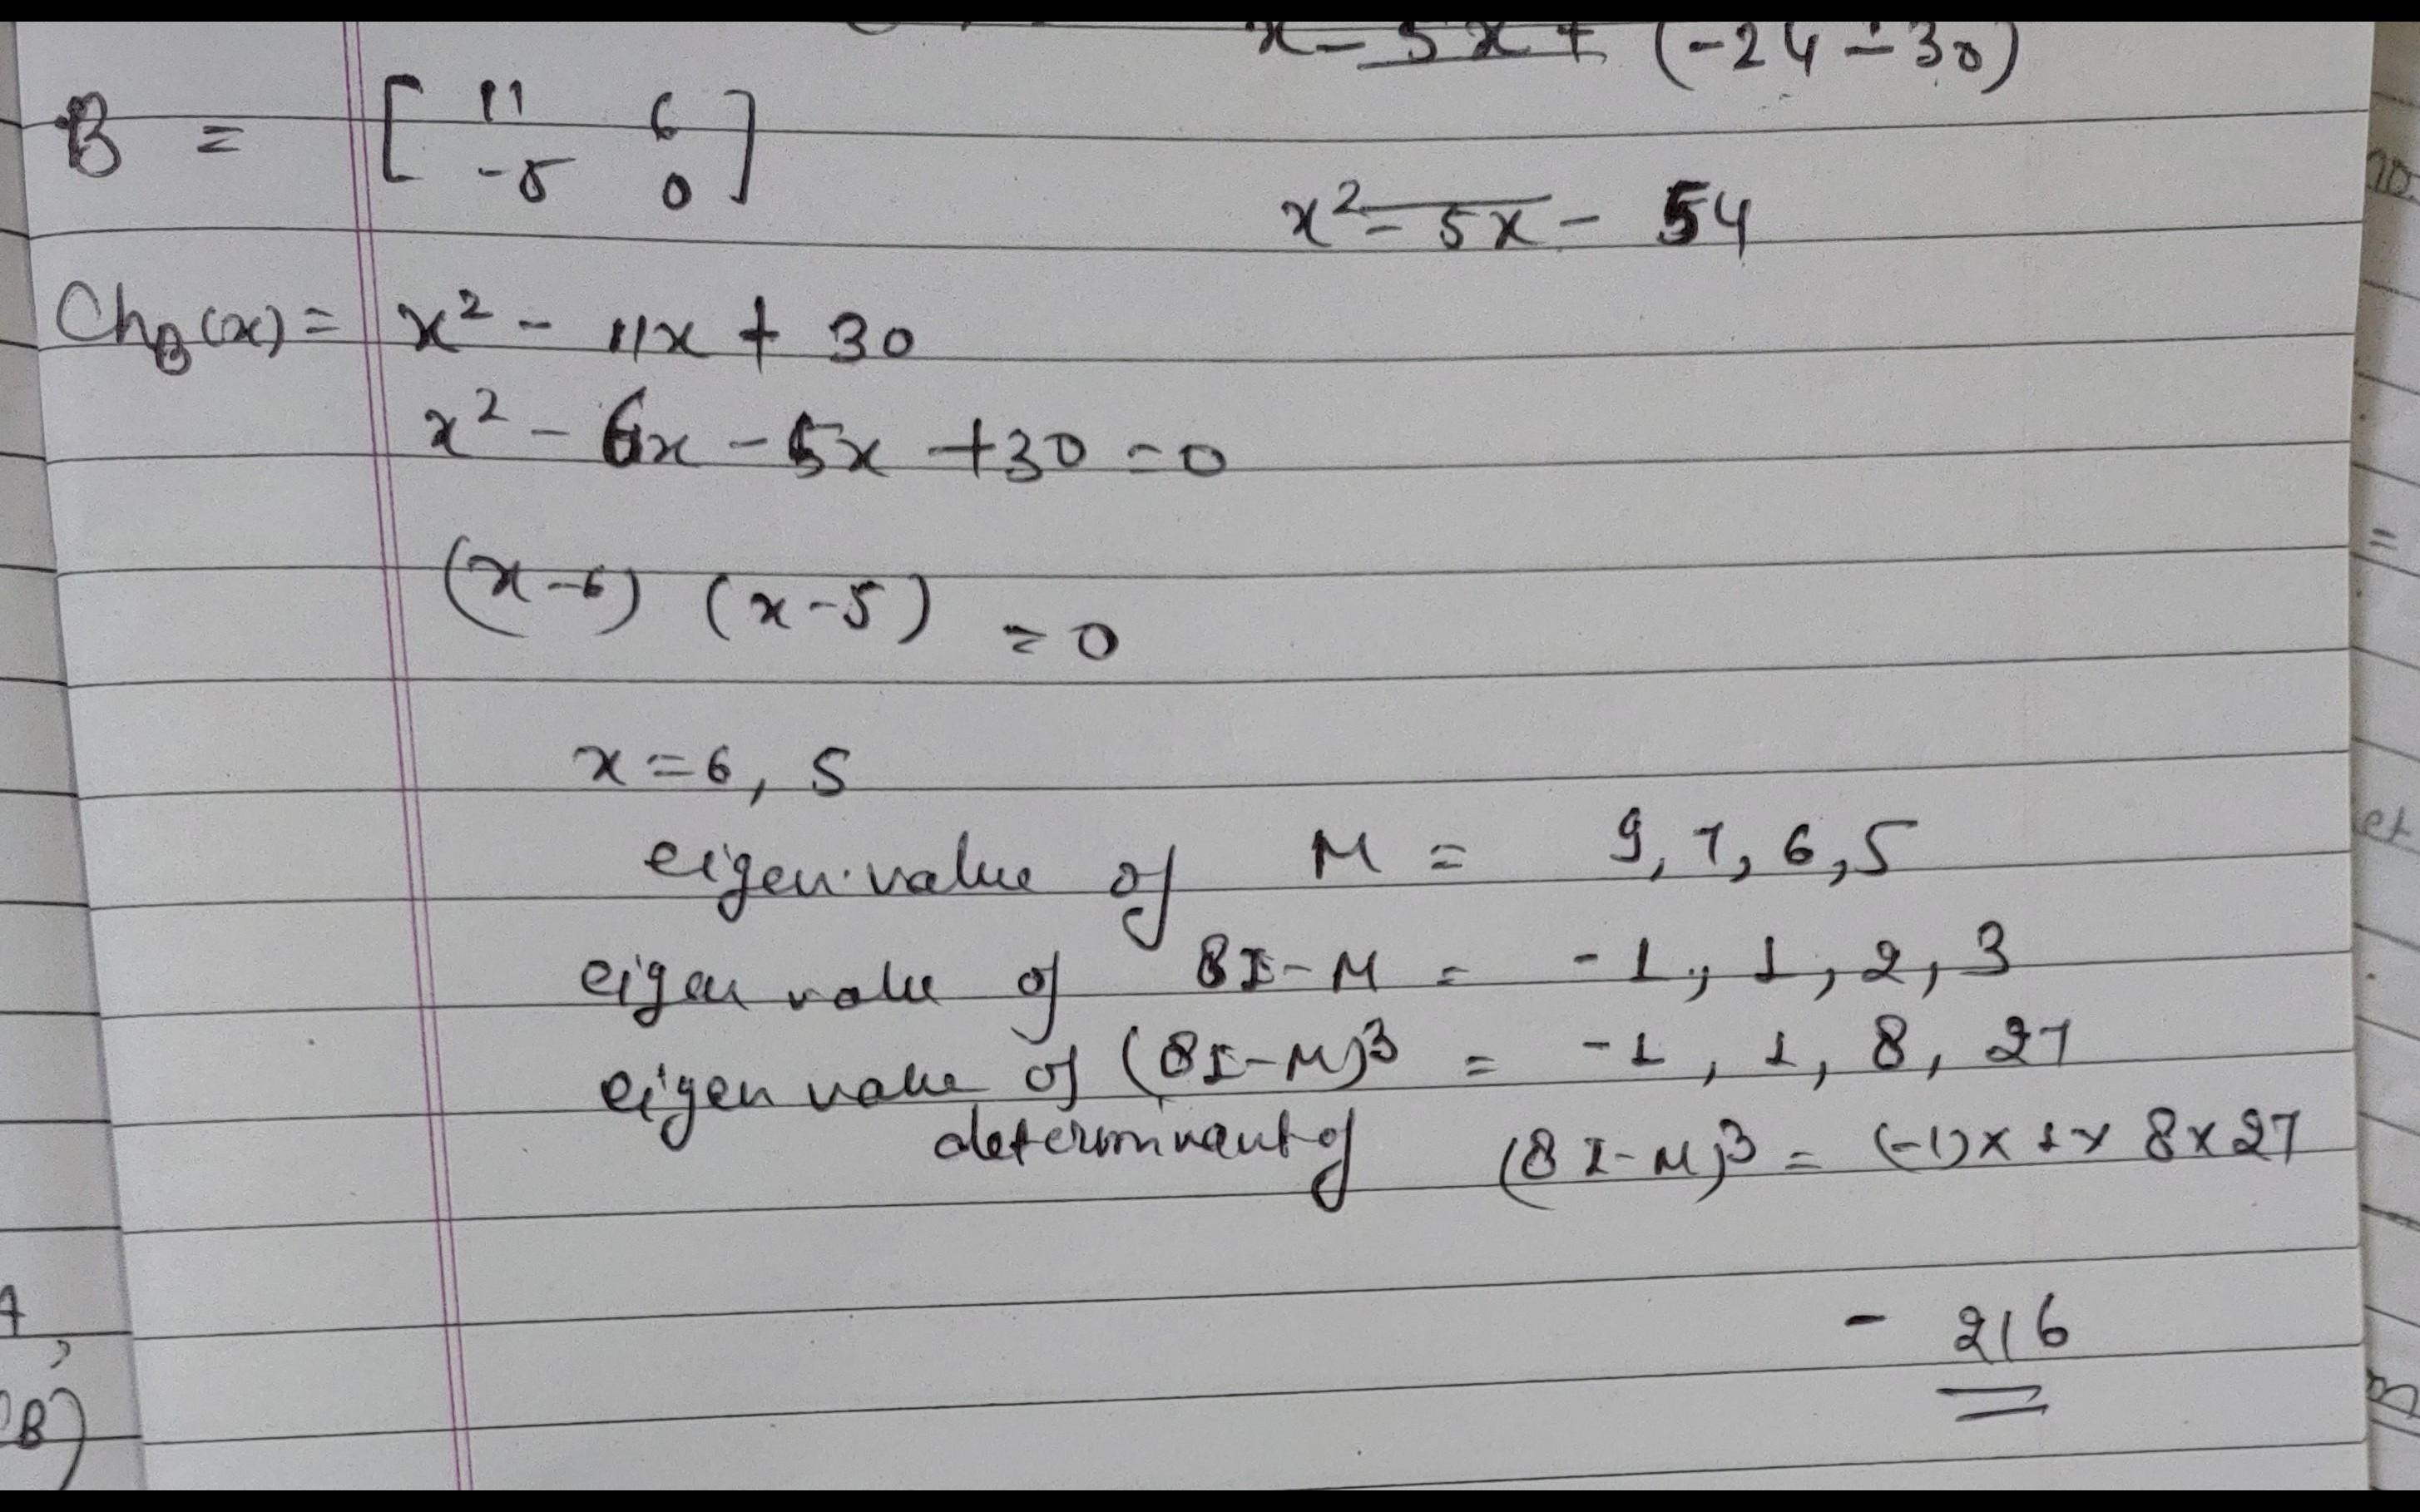 x - 5x + (-24 - 30)
B = [ 11 6
-5 0 ]
x² - 5x - 54
Ch_B(x) = x² - 11x + 30
x² - 6x - 5x + 30 = 0
(x-6) (x-5) = 0
x = 6, 5
eigen value of M = 9, 7, 6, 5
eigen value of 8I - M = -1, 1, 2, 3
eigen value of (8I-M)³ = -1, 1, 8, 27
determinant of (8I-M)³ = (-1) x 1 x 8 x 27
- 216